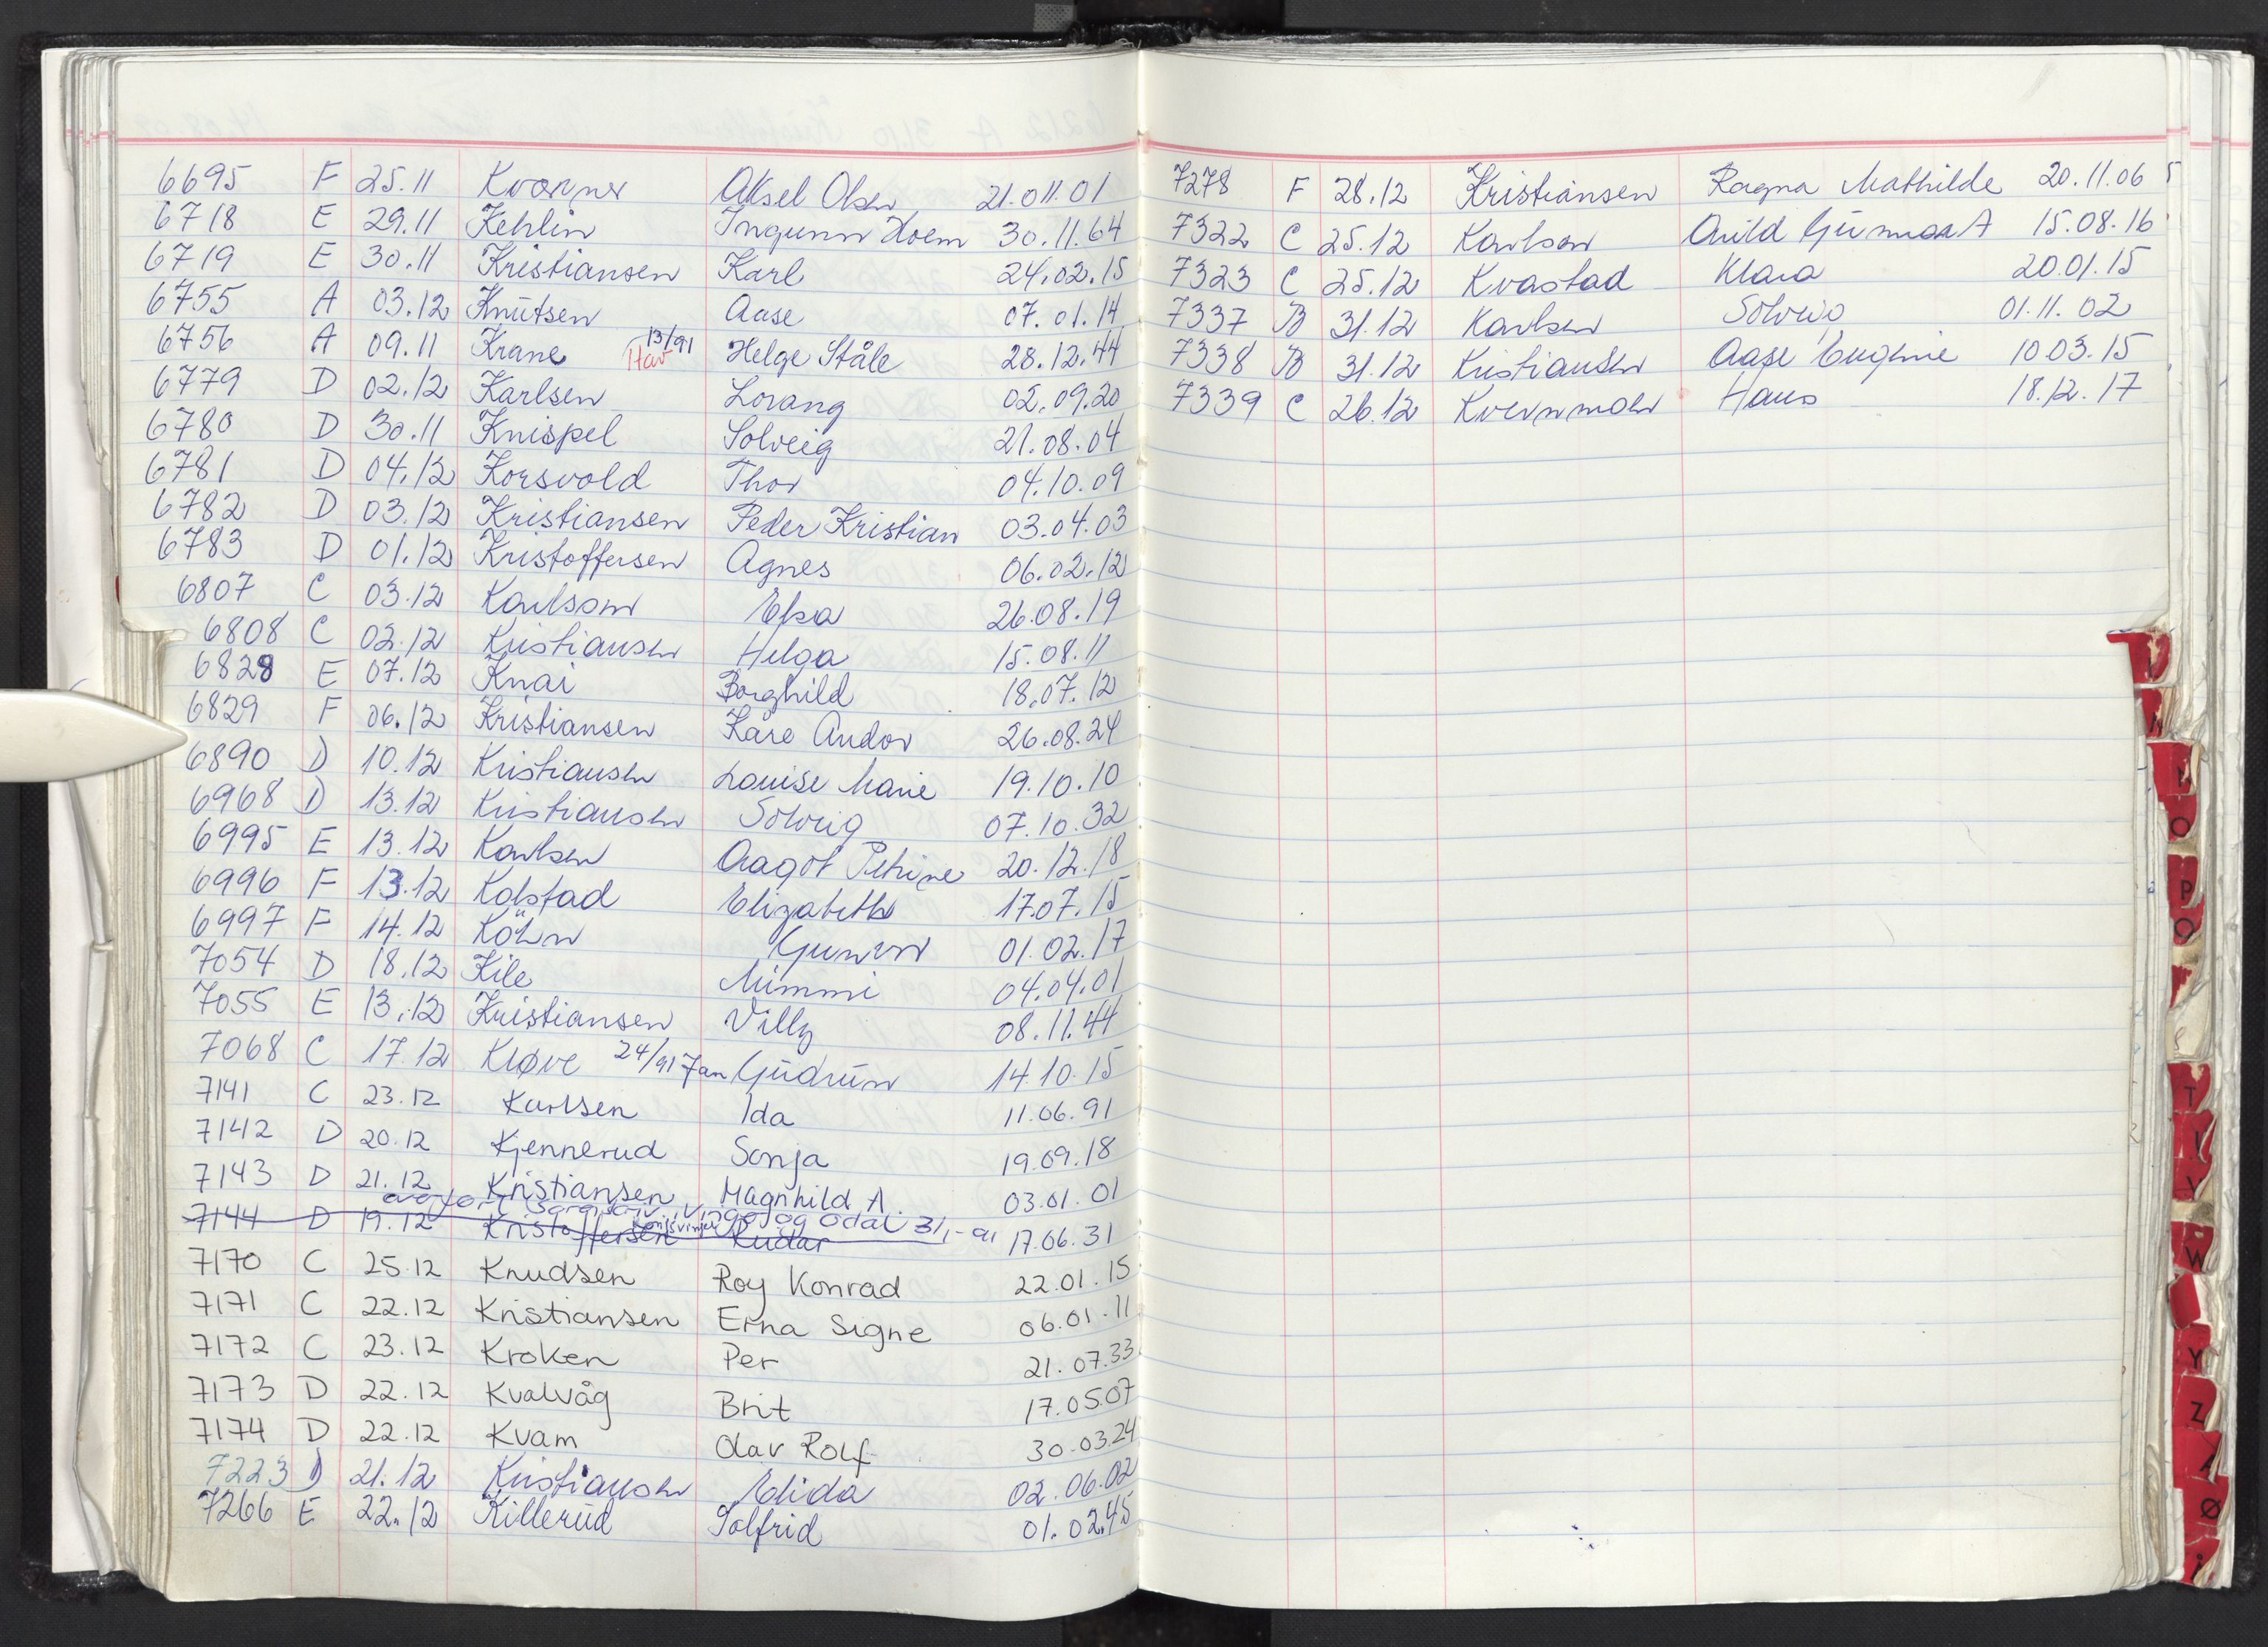 6695 F 25.11 Kværner Aksel Olsen 21.011.01
6718 E 29.11 Kehlin Ingunn Hoem 30.11.64
6719 E 30.11 Kristiansen Karl 24.02.15
6755 A 03.12 Knutsen Aase 07.01.14
6756 A 09.11 Krane 13/91 Helge Ståle 28.12.44
6779 D 02.12 Karlsen Lorang 02.09.20
6780 D 30.11 Knispel Solveig 21.08.04
6781 D 04.12 Korsvold Thor 04.10.09
6782 D 03.12 Kristiansen Peder Kristian 03.04.03
6783 D 01.12 Kristoffersen Agnes 06.02.12
6807 C 03.12 Karlsson Elsa 26.08.19
6808 C 02.12 Kristiansen Helga 15.08.11
6828 E 07.12 Knai Borghild 18.07.12
6829 F 06.12 Kristiansen Kåre Andor 26.08.24
6890 D 10.12 Kristiansen Louise Marie 19.10.10
6968 D 13.12 Kristiansen Solveig 07.10.32
6995 E 13.12 Karlsen Aagot Petrine 20.12.18
6996 F 13.12 Kolstad Elizabeth 17.07.15
6997 F 14.12 Köhn Gunvor 01.02.17
7054 D 18.12 Kile Mimmi 04.04.01
7055 E 13.12 Kristiansen Villy 08.11.44
7068 C 17.12 Kløve 24/91 Gudrun 14.10.15
7141 C 23.12 Karlsen Ida 11.06.91
7142 D 20.12 Kjennerud Sonja 19.09.18
7143 D 21.12 Kristiansen Magnhild A. 03.01.01
Vinger og Odal 3/1-91
7144 D 19.12 Kristoffersen Reidar 17.06.31
7170 C 25.12 Knudsen Roy Konrad 22.01.15
7171 C 22.12 Kristiansen Erna Signe 06.01.11
7172 C 23.12 Kroken Per 21.07.33
7173 D 22.12 Kvalvåg Brit 17.05.07
7174 D 22.12 Kvam Olav Rolf 30.03.24
7223 D 21.12 Kristiansen Elida 02.06.02
7266 E 22.12 Killerud Solfrid 01.02.45
7278 F 28.12 Kristiansen Ragna Mathilde 20.11.06
7322 C 25.12 Karlsen Arild Gunnar A 15.08.16
7323 C 25.12 Kvastad Klara 20.01.15
7337 B 31.12 Karlsen Solveig 01.11.02
7338 B 31.12 Kristiansen Aase Eugenie 10.03.15
7339 C 26.12 Kvernmoen Hans 18.12.17
O
P
T
Y
W
Y
Z
Ø